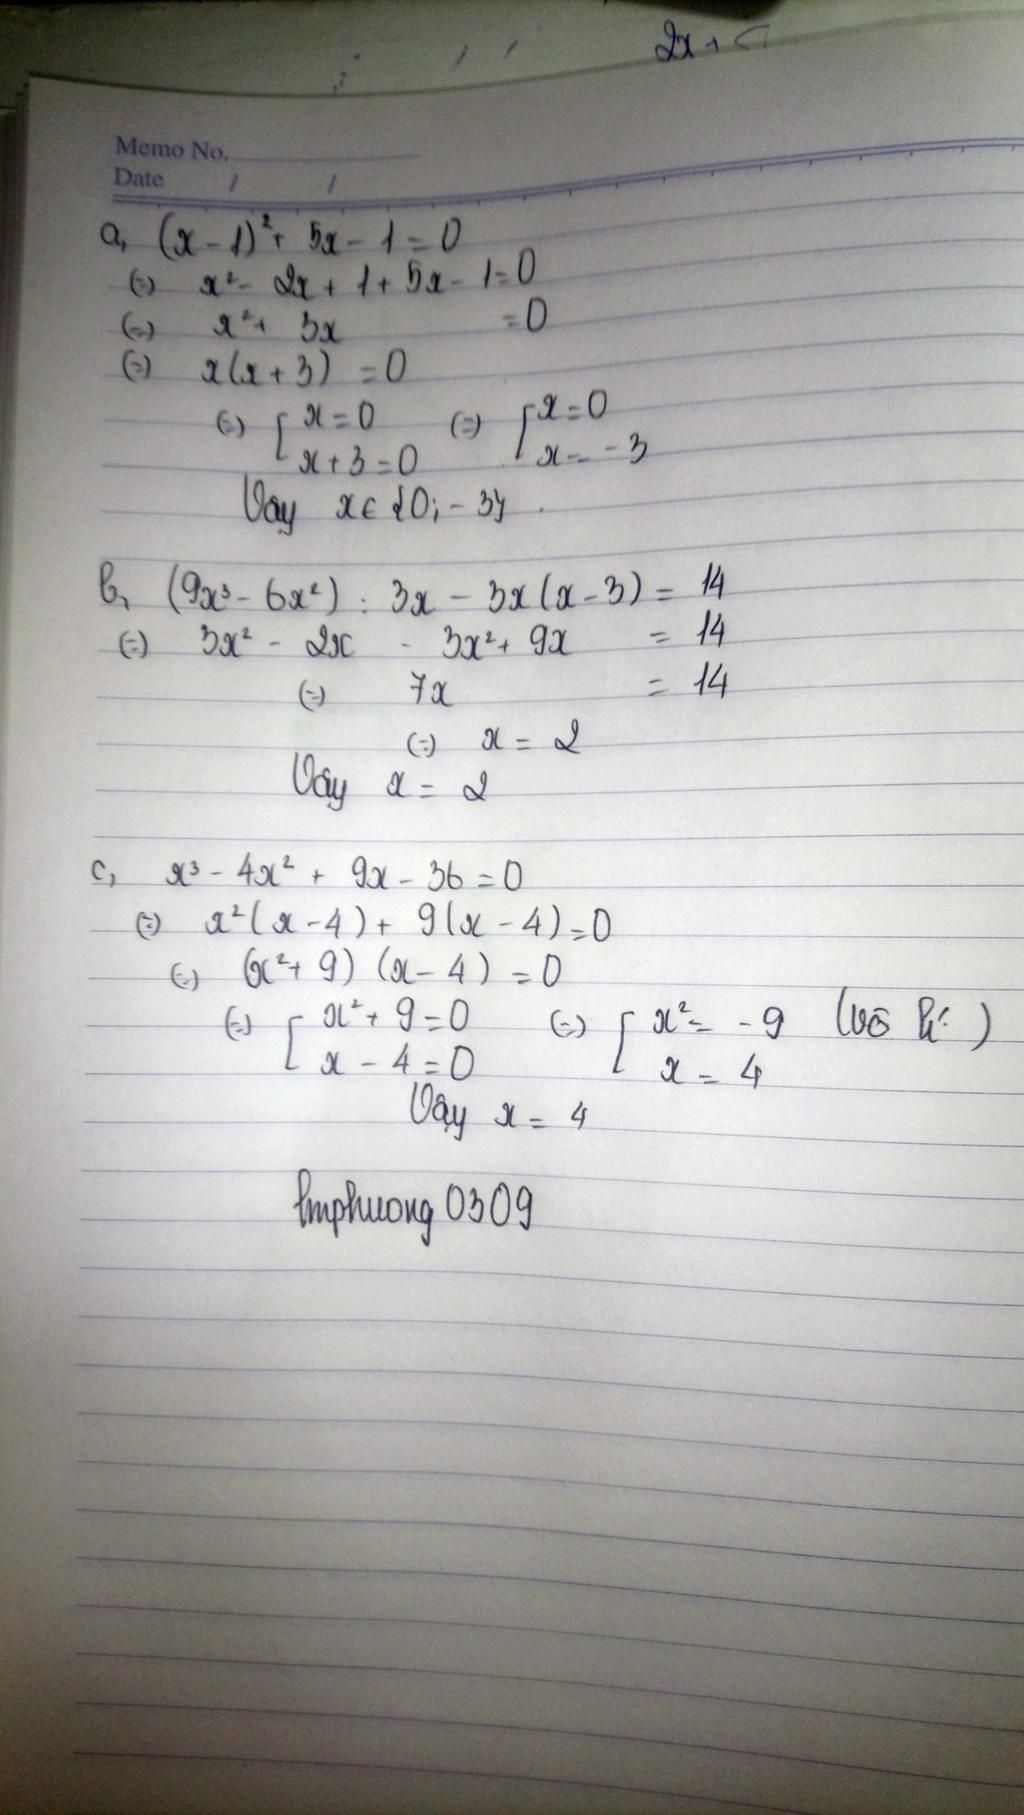 2x +
Memo No.
Date / /
a, (x - 1)² + 5x - 1 = 0
(=) x² - 2x + 1 + 5x - 1 = 0
(=) x² + 3x = 0
(=) x(x + 3) = 0
(=) [ x = 0 (=) [ x = 0
x + 3 = 0 x = -3
Vậy x ∈ {0; -3}.
b, (9x³ - 6x²) : 3x - 3x(x - 3) = 14
(=) 3x² - 2x - 3x² + 9x = 14
(=) 7x = 14
(=) x = 2
Vậy x = 2
c, x³ - 4x² + 9x - 36 = 0
(=) x²(x - 4) + 9(x - 4) = 0
(=) (x² + 9) (x - 4) = 0
(=) [ x² + 9 = 0 (=) [ x² = -9 (vô lí)
x - 4 = 0 x = 4
Vậy x = 4
lmphuong0309